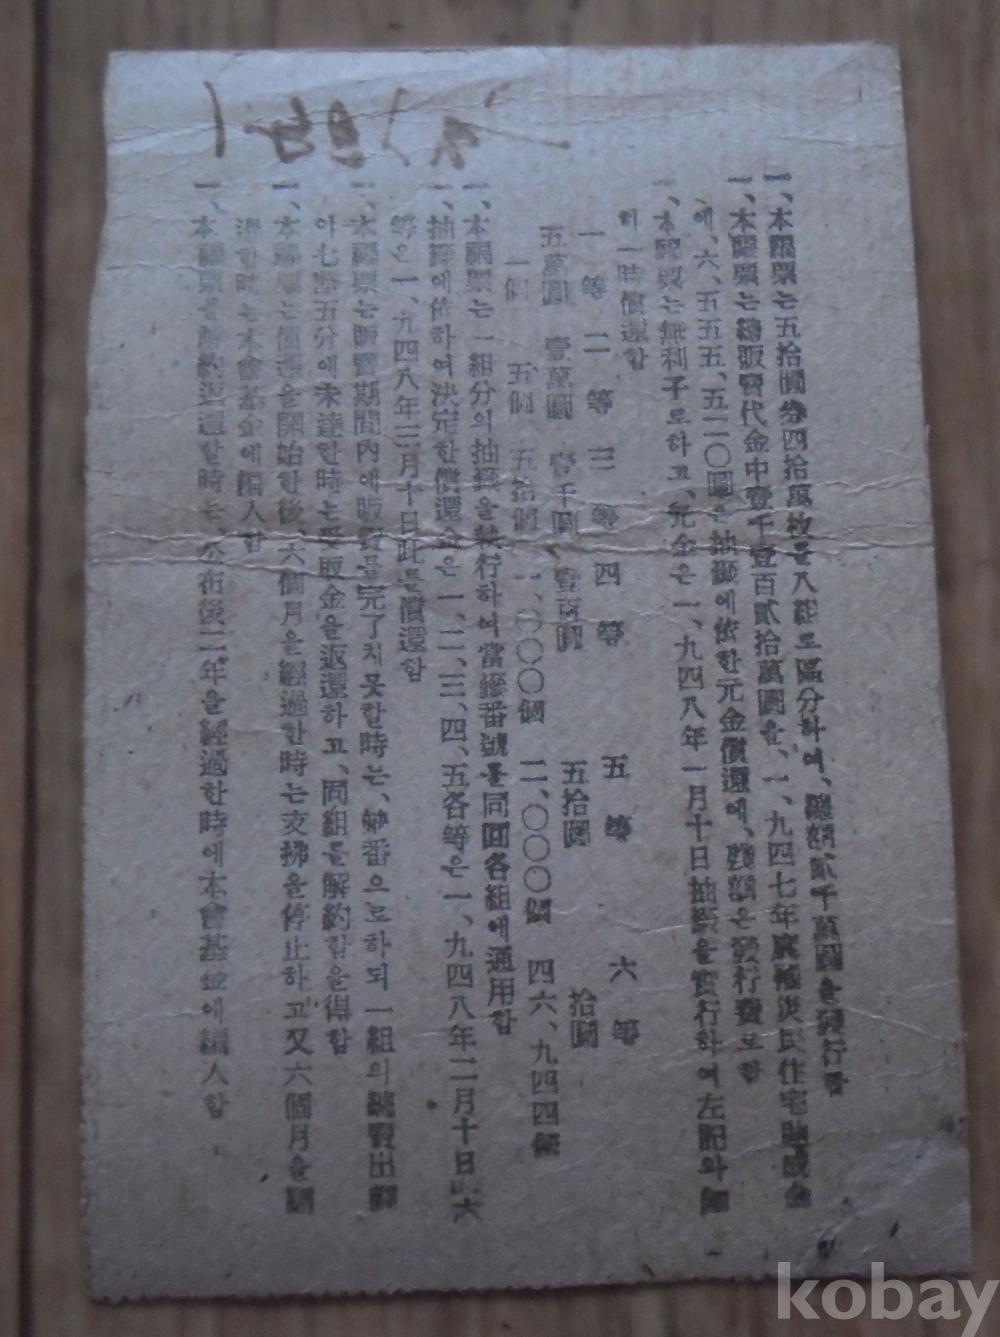 一、本福票는五拾圓券四拾萬枚를八組로區分하여、總額貳千萬圓을發行함
一、本福票는總販賣代金中壹千壹百貳拾萬圓을、一、九四七年度罹災民住宅助成金
에、六、五五五、五二〇圓은抽籤에依한元金償還에、殘額은發行費로함
一、本福票는無利子로하고、元金은一、九四八年一月十日抽籤을實行하여左記와如
히一時償還함
一等 二等 三等 四等 五等 六等
五萬圓 壹萬圓 壹千圓 壹百圓 五拾圓 拾圓
一個 五個 五拾個 一、〇〇〇個 二、〇〇〇個 四六、九四四個
一、本福票는一組分의抽籤을執行하여當籤番號를同回各組에通用함
一、抽籤에依하여決定한償還金은一、二、三、四、五各等은一、九四八年二月十日 六
等은一、九四八年三月十日此를償還함
一、本福票는販賣期間內에販賣를完了치못할時는、 番으로하되一組의總賣出額
이七割五分에未達한時는受取金을返還하고、同組를解約함을得함
一、本福票는償還을開始한後、六個月을經過한時는支拂을停止하고又六個月을經
過한時는本會基金에編入함
一、本福票를解約返還할時는、公布後二年을經過한時에本會基金에編入함
kobay